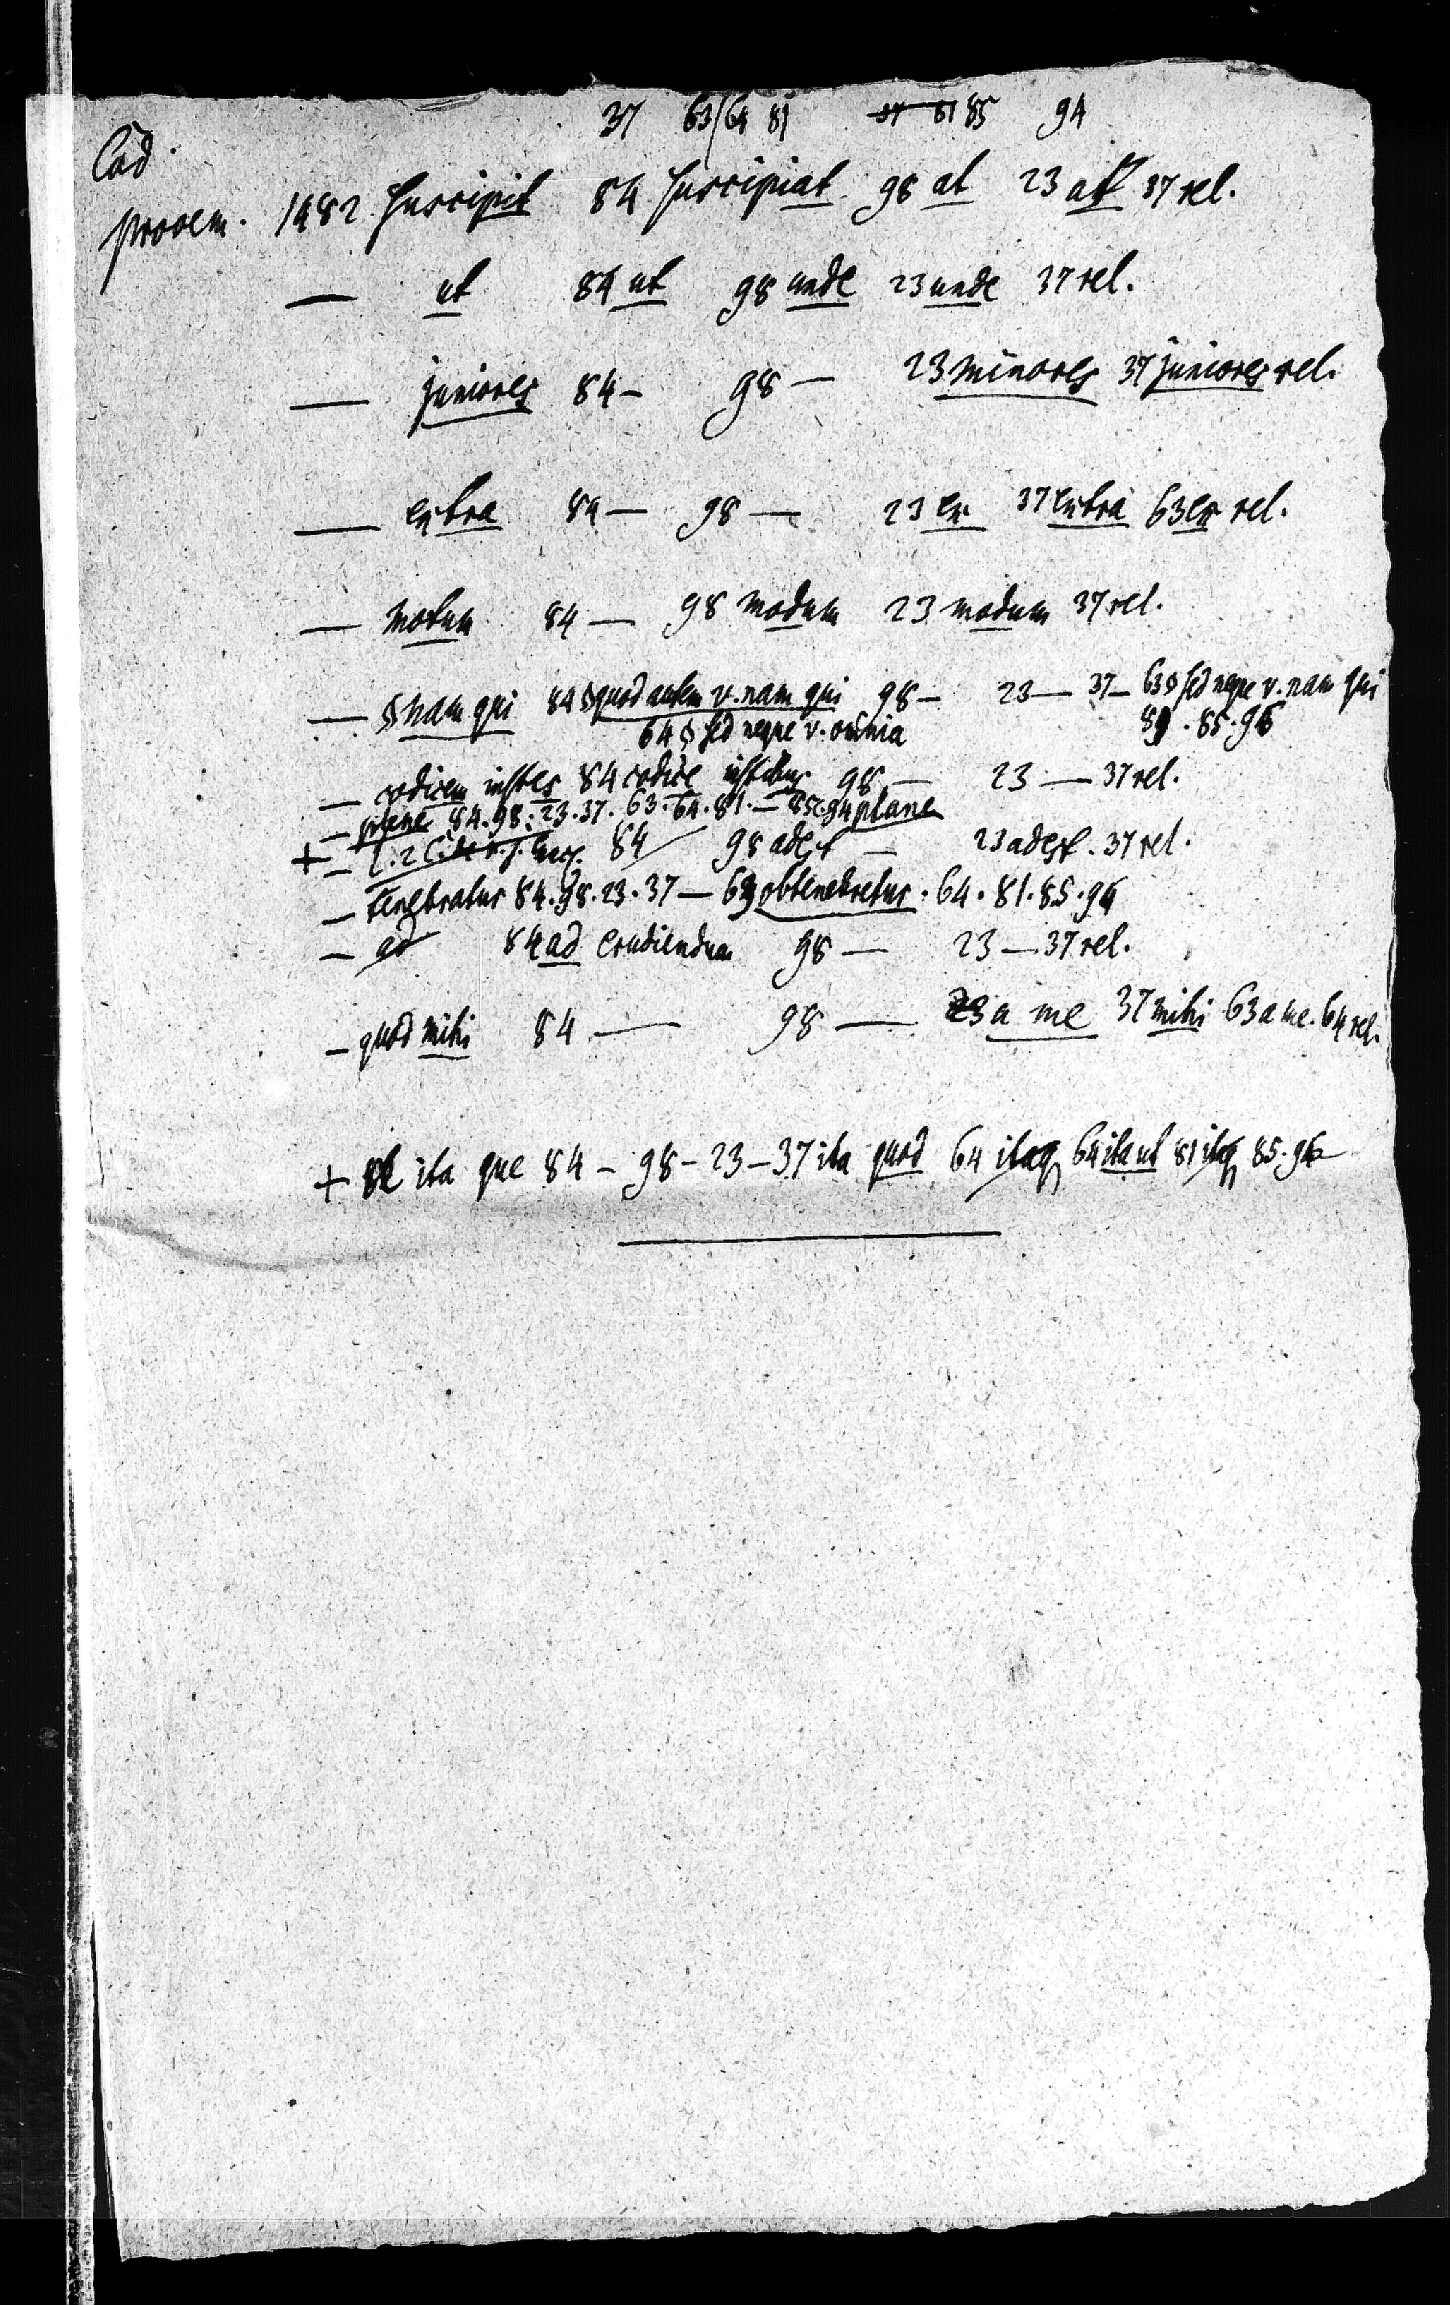 37 63/64 81 37 81 85 94
Cod.
prooem. 1482 suscipit 84 suscipiat 98 at 23 at 37 rel.
— ut 84 ut 98 unde 23 unde 37 rel.
— juniores 84 — 98 — 23 minores 37 juniores rel.
— extra 84 — 98 — 23 ex 37 extra 63 ex rel.
— motum 84 — 98 modum 23 modum 37 rel.
— § nam qui 84 § quod autem v. nam qui 98 — 23 — 37 — 63 § sed neque v. nam qui
64 § sed neque v. omnia 81. 85. 94
— codicem 84 codice 98 — 23 — 37 rel.
— plene 84. 98. 23. 37. 63. 64. 81. — 85. 94 plane
+ — l. 2 C. 84 98 adest — 23 adest. 37 rel.
— tenebratur 84. 98. 23. 37 — 63 obtenebretur. 64. 81. 85. 94
— ad 84 ad erudiendum 98 — 23 — 37 rel.
— quod mihi 84 — 98 — 23 a me 37 mihi 63 a me. 64 rel.
+ ita que 84 — 98 — 23 — 37 ita quod 64 itaq 64 ita ut 81 itaq 85. 94